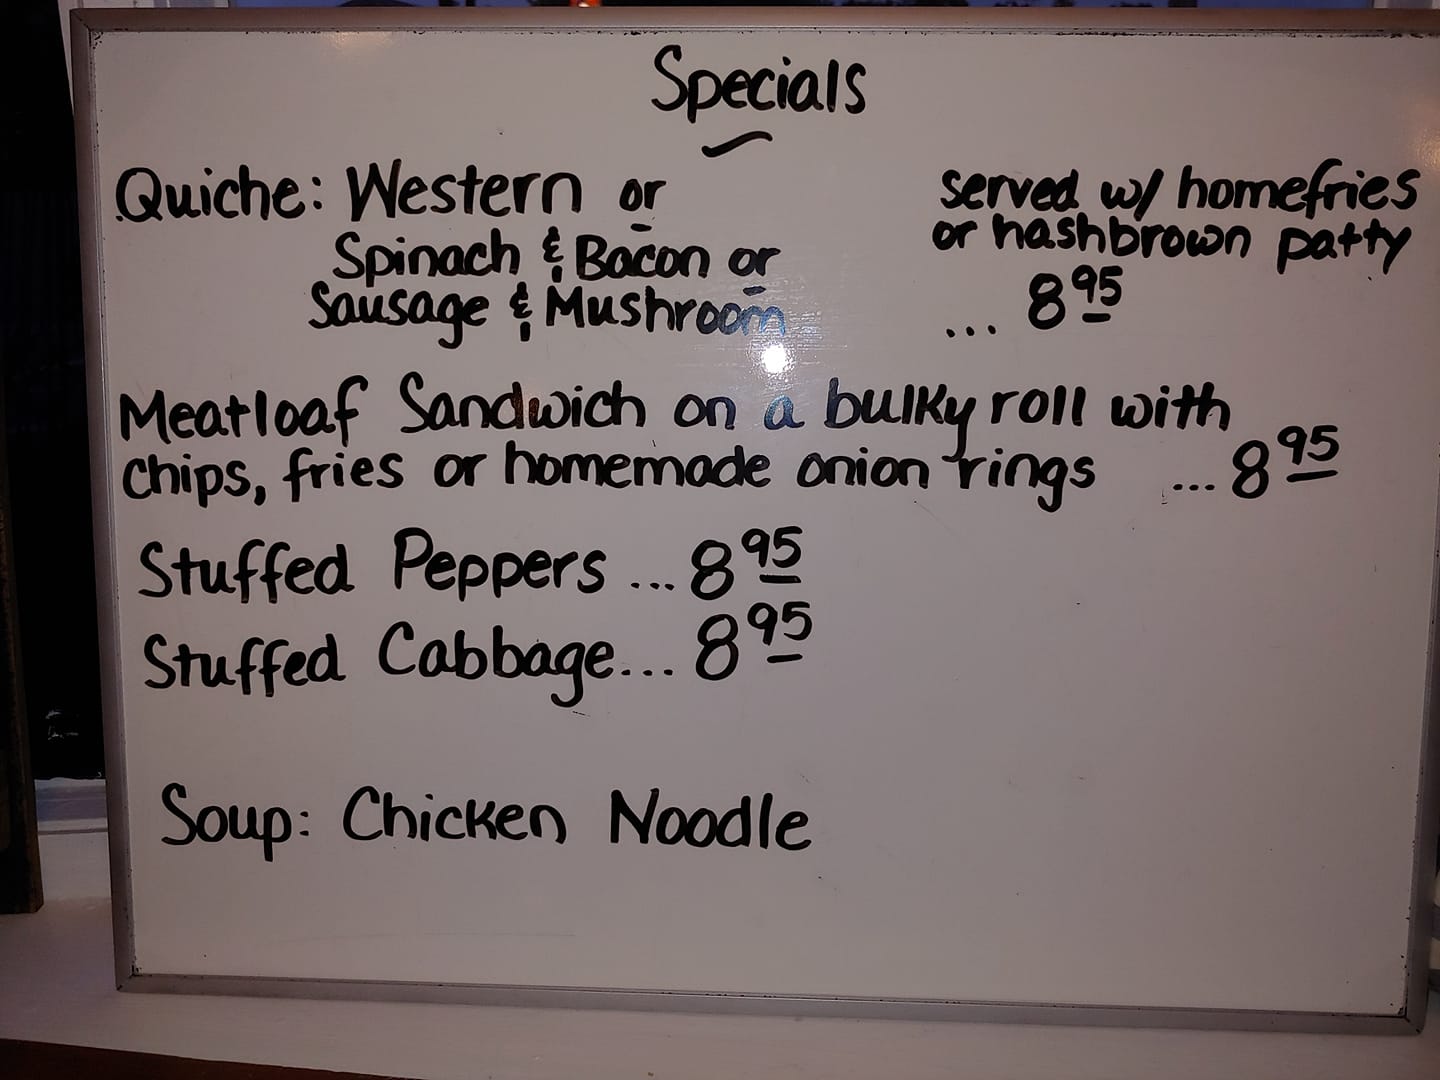 Specials
Quiche: Western or
Spinach & Bacon or
Sausage & Mushroom
served w/ homefries
or hashbrown patty
... 8 95
Meatloaf Sandwich on a bulky roll with
chips, fries or homemade onion rings ... 8 95
Stuffed Peppers ... 8 95
Stuffed Cabbage... 8 95
Soup: Chicken Noodle